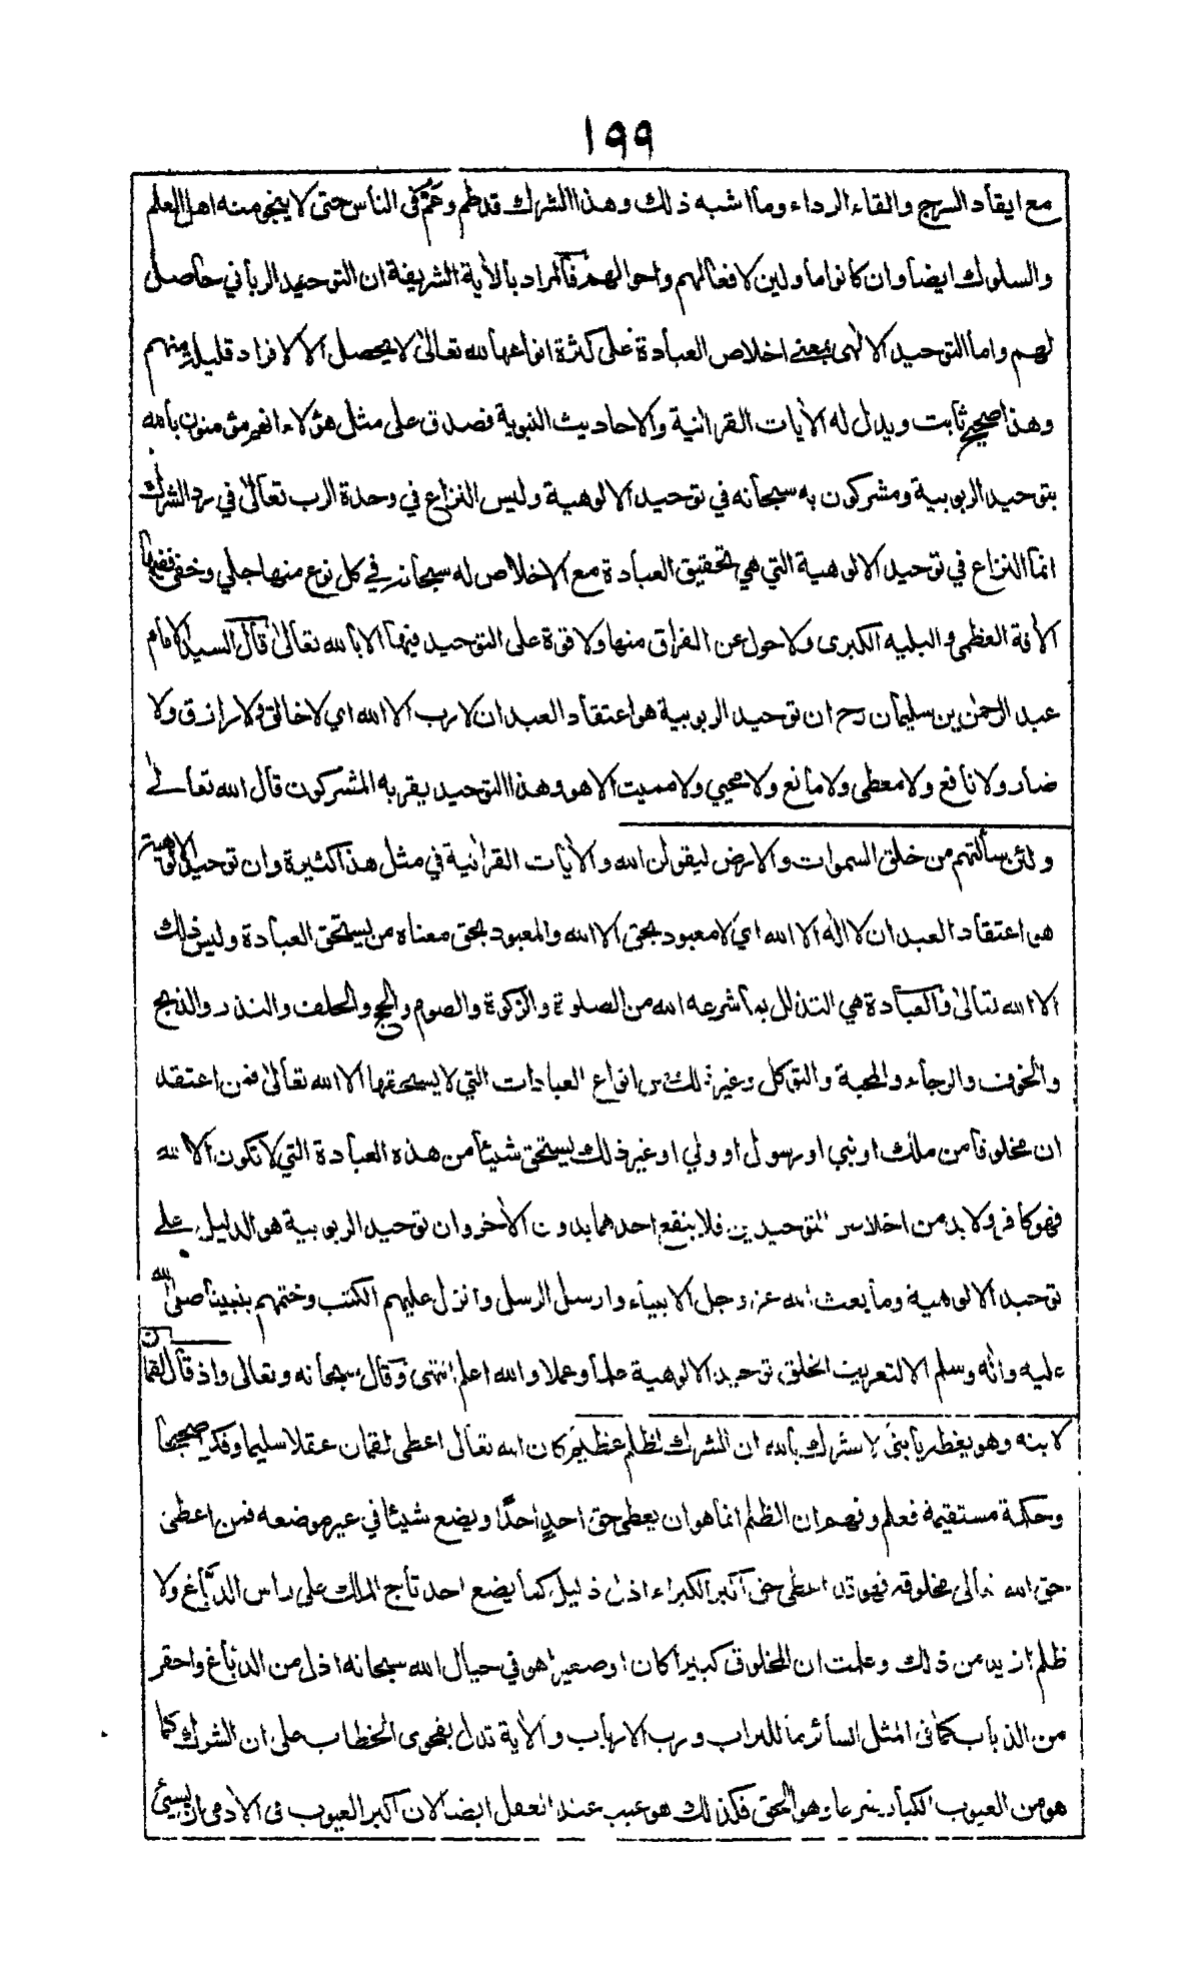 ١٩٩
مع ايقاد السرج والقاء الرداء وما اشبه ذلك وهذا الشرك قد طم وعم في الناس حتى لا ينجو منه اهل العلم
والسلوك ايضا وان كانوا ماولين لافعالهم واحوالهم فالمراد بالآية الشريفة ان التوحيد الرباني حاصل
لهم واما التوحيد الالهى بمعنى اخلاص العبادة على كثرة انواعها لله تعالىٰ لا يحصل الا لافراد قليلة منهم
وهذا صحيح ثابت ويدل له الآيات القرانية والاحاديث النبوية فصدق على مثل هؤلاء انهم مؤمنون بالله
بتوحيد الربوبية ومشركون به سبحانه في توحيد الالوهية وليس النزاع في وحدة الرب تعالىٰ في رد الشرك
انما النزاع في توحيد الالوهية التي هي تحقيق العبادة مع الاخلاص له سبحانه في كل نوع منها جلي وخفي ففيها
الآفة العظمى والبليه الكبرى ولا حول عن الفراق منها ولا قوة على التوحيد فيها الا بالله تعالىٰ قال السيد الامام
عبد الرحمٰن بن سليمان رح ان توحيد الربوبية هو اعتقاد العبد ان لا رب الا الله اي لا خالق ولا رازق ولا
ضار ولا نافع ولا معطى ولا مانع ولا محيي ولا مميت الا هو وهذا التوحيد يقر به المشركون قال الله تعالىٰ
ولئن سألتهم من خلق السموات والارض ليقولن الله والآيات القرانية في مثل هذا كثيرة وان توحيد الالوهية
هو اعتقاد العبد ان لا اله الا الله اي لا معبود بحق الا الله والمعبود بحق معناه من يستحق العبادة وليس ذلك
الا الله تعالىٰ والعبادة هي التذلل بما شرعه الله من الصلوة والزكوة والصوم والحج والحلف والنذر والذبح
والخوف والرجاء والمحبة والتوكل وغير ذلك من انواع العبادات التي لا يستحقها الا الله تعالىٰ فمن اعتقد
ان مخلوقا من ملك او نبي او رسول او ولي او غير ذلك يستحق شيئا من هذه العبادة التي لا تكون الا لله
فهو كافر ولا بد من اخلاص التوحيدين فلا ينفع احدهما بدون الآخر وان توحيد الربوبية هو الدليل على
توحيد الالوهية وما بعث الله عز وجل الانبياء وارسل الرسل وانزل عليهم الكتب وختمهم بنبينا صلى الله
عليه وآله وسلم الا لتعريف الخلق توحيد الالوهية علما وعملا والله اعلم انتهى وقال سبحانه وتعالى واذ قال لقمان
لابنه وهو يعظه يا بني لا تشرك بالله ان الشرك لظلم عظيم كان الله تعالى اعطى لقمان عقلا سليما وفكرا صحيحا
وحكمة مستقيمة فعلم وفهم ان الظلم انما هو ان يعطى حق احدٍ احدًا ويضع شيئا في غير موضعه فمن اعطىٰ
حق الله تعالى مخلوقه فهو قد اعطى حق اكبر الكبراء اذل ذليل كما يضع احد تاج الملك على راس الدبّاغ ولا
ظلم ازيد من ذلك وعلمت ان المخلوق كبيرا كان او صغيرا هو في حيال الله سبحانه اذل من الدباغ واحقر
من الذباب كما فى المثل السائر ما للتراب ورب الارباب والآية تدل بفحوى الخطاب على ان الشرك كما
هو من العيوب الكبار شرعا وهو الحق فكذلك هو عيب عند العقل ايضا لان اكبر العيوب فى الآدمى ان يسيئ